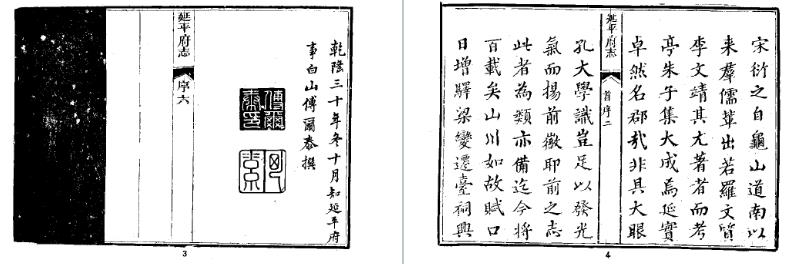 乾隆三十年冬十月知延平府
事白山傅爾泰撰
傅爾泰印
延平府志 序六
3
宋衍之自龜山道南以
来羣儒輩出若羅文質
李文靖其尤著者而考
亭朱子集大成焉延實
卓然名郡哉非具大眼
延平府志 首序二
孔大學識豈足以發光
氣而揚前徽耶前之志
此者為類亦備迄今將
百載矣山川如故賦口
日增驛梁變遷臺祠興
4